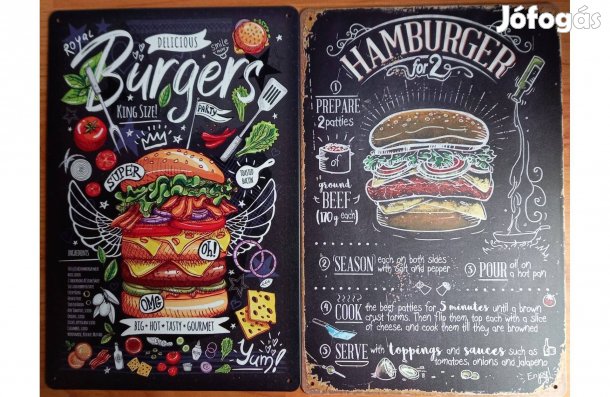 Jófogás
Royal
DELICIOUS
smile
Burgers
KING SIZE!
PARTY
SUPER
TOASTED
BACON
Oh!
INGREDIENTS
OMG
BIG • HOT • TASTY • GOURMET
Yum!
HAMBURGER
for 2
1
PREPARE
2 patties
of
ground
BEEF
(170g each)
2 SEASON each on both sides
with salt and pepper
3 POUR oil on
a hot pan
4 COOK the beef patties for 5 minutes until a brown
crust forms. Then flip them, top each with a slice
of cheese, and cook them till they are browned
5 SERVE with toppings and sauces such as
tomatoes, onions and jalapeno
Enjoy!